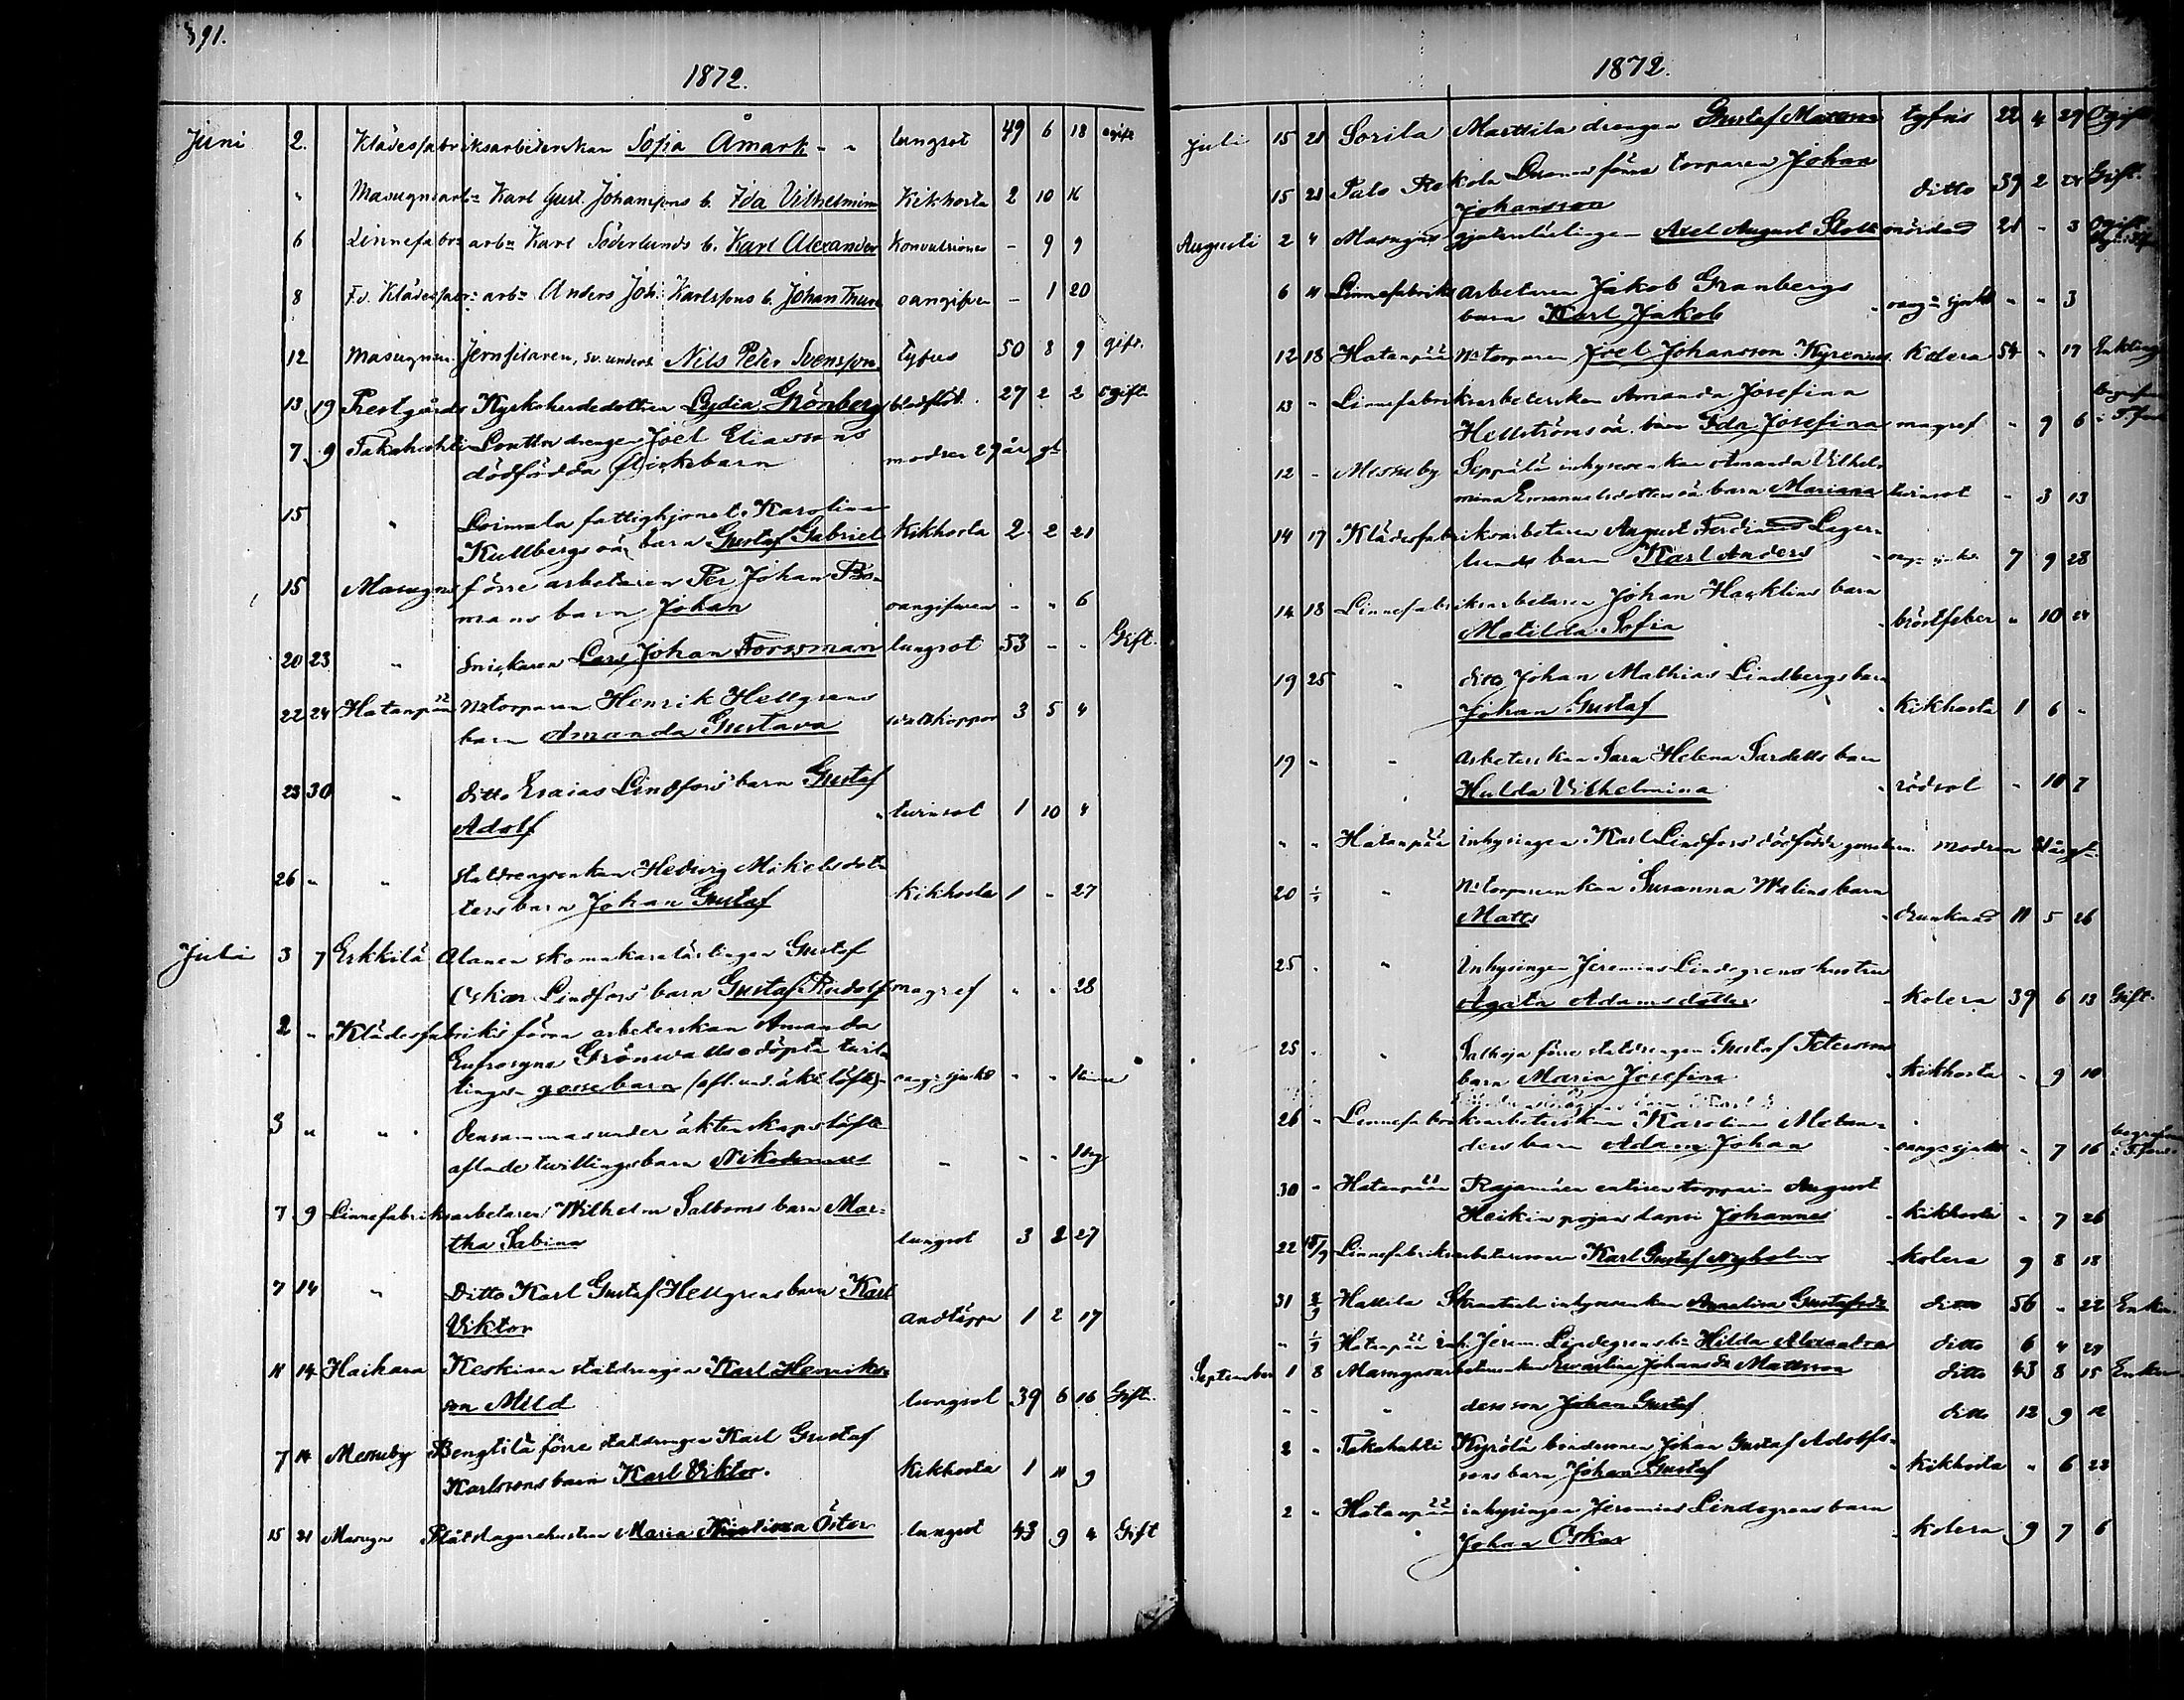 391.
1872.
Juni 2. Klädesfabriksarbeterskan Sofia Åmark lungsot 49 6 18 ogift
" Masugnsarbn Karl Gust. Johanssons b. Ida Vilhelmina Kikhosta 2 10 16
6 Linnefabrs arbn Karl Söderlunds b. Karl Alexander Konvulsioner - 9 9
8 F.d. Klädesfabrs arbn Anders Joh. Karlssons b. Johan Thure oangifven - 1 20
12 Masugnen Jernfilaren, sv. unders. Nils Peter Svensson tyfus 50 8 9 gift.
13 19 Prestgårds Kyrkoherdedottren Lydia Grönberg blodflöt 27 2 2 ogift
7 9 Takahuhti Lonttu drengen Joel Eliassons
dödfödda flickebarn modren 29 år gl
15 " Loimala fattighjonet Karolina
Kullbergs oä barn Gustaf Gabriel Kikhosta 2 2 21
15 Masugns förre arbetaren Per Johan Bo-
mans barn Johan oangifven - " 6
20 23 " Snickaren Lars Johan Forssman lungsot 53 - - Gift.
22 24 Hatanpää Mtorparen Henrik Hellgrens
barn Amanda Gustava vattkoppor 3 5 4
23 30 " ditto Esaias Lindfors' barn Gustaf
Adolf tvinsot 1 10 4
26 " " statdrengsenkan Hedvig Mikelsdot-
ters barn Johan Gustaf Kikhosta 1 - 27
Juli 3 7 Erkkilä Alanen skomakarelärlingen Gustaf
Oskar Lindfors' barn Gustaf Rudolf magref " " 28
2 " Klädesfabriks förra arbeterskan Amanda
Eufrosyne Grönwalls odöpta tvil-
lingen gossebarn (afl. und. äkt. löfte) oang. sjukd " "
3 " " densammas under äktenskapslöfte
aflade tvillingsbarn Nikodemus " - "
7 9 Linnefabriksarbetaren Wilhelm Salboms barn Mar-
tha Sabina lungsot 3 2 27
7 14 " Ditto Karl Gustaf Hellgrens barn Karl
Viktor andtäppa 1 2 17
11 14 Haihara Keskinen statdrengen Karl Henriks-
son Mild lungsot 39 6 16 Gift.
7 14 Messuby Bengtilä förre statdrengen Karl Gustaf
Karlssons barn Karl Viktor. Kikhosta 1 11 9
15 21 Masugns Plåtslagarehustrun Maria Kristina Öster lungsot 43 9 4 Gift
1872.
Juli 15 21 Sorila Marttila drengen Gustaf Matsson tyfus 22 4 29 Ogift
15 21 Palo Rokola förra torparen Johan
Johansson ditto 39 2 Gift.
Augusti 2 4 Masugns gjuterilärlingen Axel August Stolt mördad 21 - 3 Ogift
6 11 Linnefabriks arbetaren Jakob Granbergs
barn Karl Jakob oang. sjukd " " 3
12 18 Hatanpää Mtorparen Joel Johansson Kyrenius Kolera 54 " 17 Enkling
13 " Linnefabriksarbeterskan Amanda Josefina
Hellströms oä. barn Ida Josefina magref " 9 6 begrafven i T:fors
12 - Messuby Seppälä inhysesenkan Amanda Vilhel-
mina Emanuelsdotters oä barn Mariana tvinsot - 3 13
14 17 Klädesfabriksarbetaren August Ferdinand Lager-
lunds barn Karl Anders oang. sjukd. 7 9 28
14 18 Linnefabriksarbetaren Johan Hacklins barn
Matilda Sofia bröstfeber " 10 24
19 25 " ditto Johan Mathias Lindbergs barn
Johan Gustaf Kikhosta 1 6 -
19 - - Arbeterskan Sara Helena Sardells barn
Hulda Vilhelmina rödsot - 10 7
" " Hatanpää inhysingen Karl Lindfors' dödfödda gossebarn. modren år gl.
20 " Mtorparenkan Susanna Walins barn
Matts drunknad 11 5 26
25 - " Inhysingen Jeremias Lindegrens hustru
Agata Adamsdotter Kolera 39 6 13 Gift.
25 - " Salkoja förre statdrengen Gustaf Petersons
barn Maria Josefina Kikhosta - 9 10
26 - Linnefabriksarbeterskan Karolina Melan-
ders barn Adam Johan oang. sjukd - 7 16 begrafven i T:fors
30 " Hatanpään Rajamäen entisen torpparin August
Heikin pojan lapsi Johannes Kikhosta - 7 26
22 15/9 Linnefabriksarbetaresonen Karl Gustaf Nyholm kolera 9 8 18
31 8/9 Hallila inhysesenkan Annalisa Gustafsdr ditto 56 - 22 Enka
" 1/9 Hatanpää inh. Jerem. Lindegrens br Hilda Alexandra ditto 6 4 29
September 1 8 Masugnsarbetarenkan Evastina Johansdr Mattsson ditto 43 8 15 Enka
- - " dess son Johan Gustaf ditto 12 9 12
2 " Takahuhti Kyrölä bondesonen Johan Gustaf Adolfs-
sons barn Johan Gustaf Kikhosta " 6 22
2 " Hatanpää inhysingen Jeremias Lindegrens barn
Johan Oskar Kolera 9 7 6